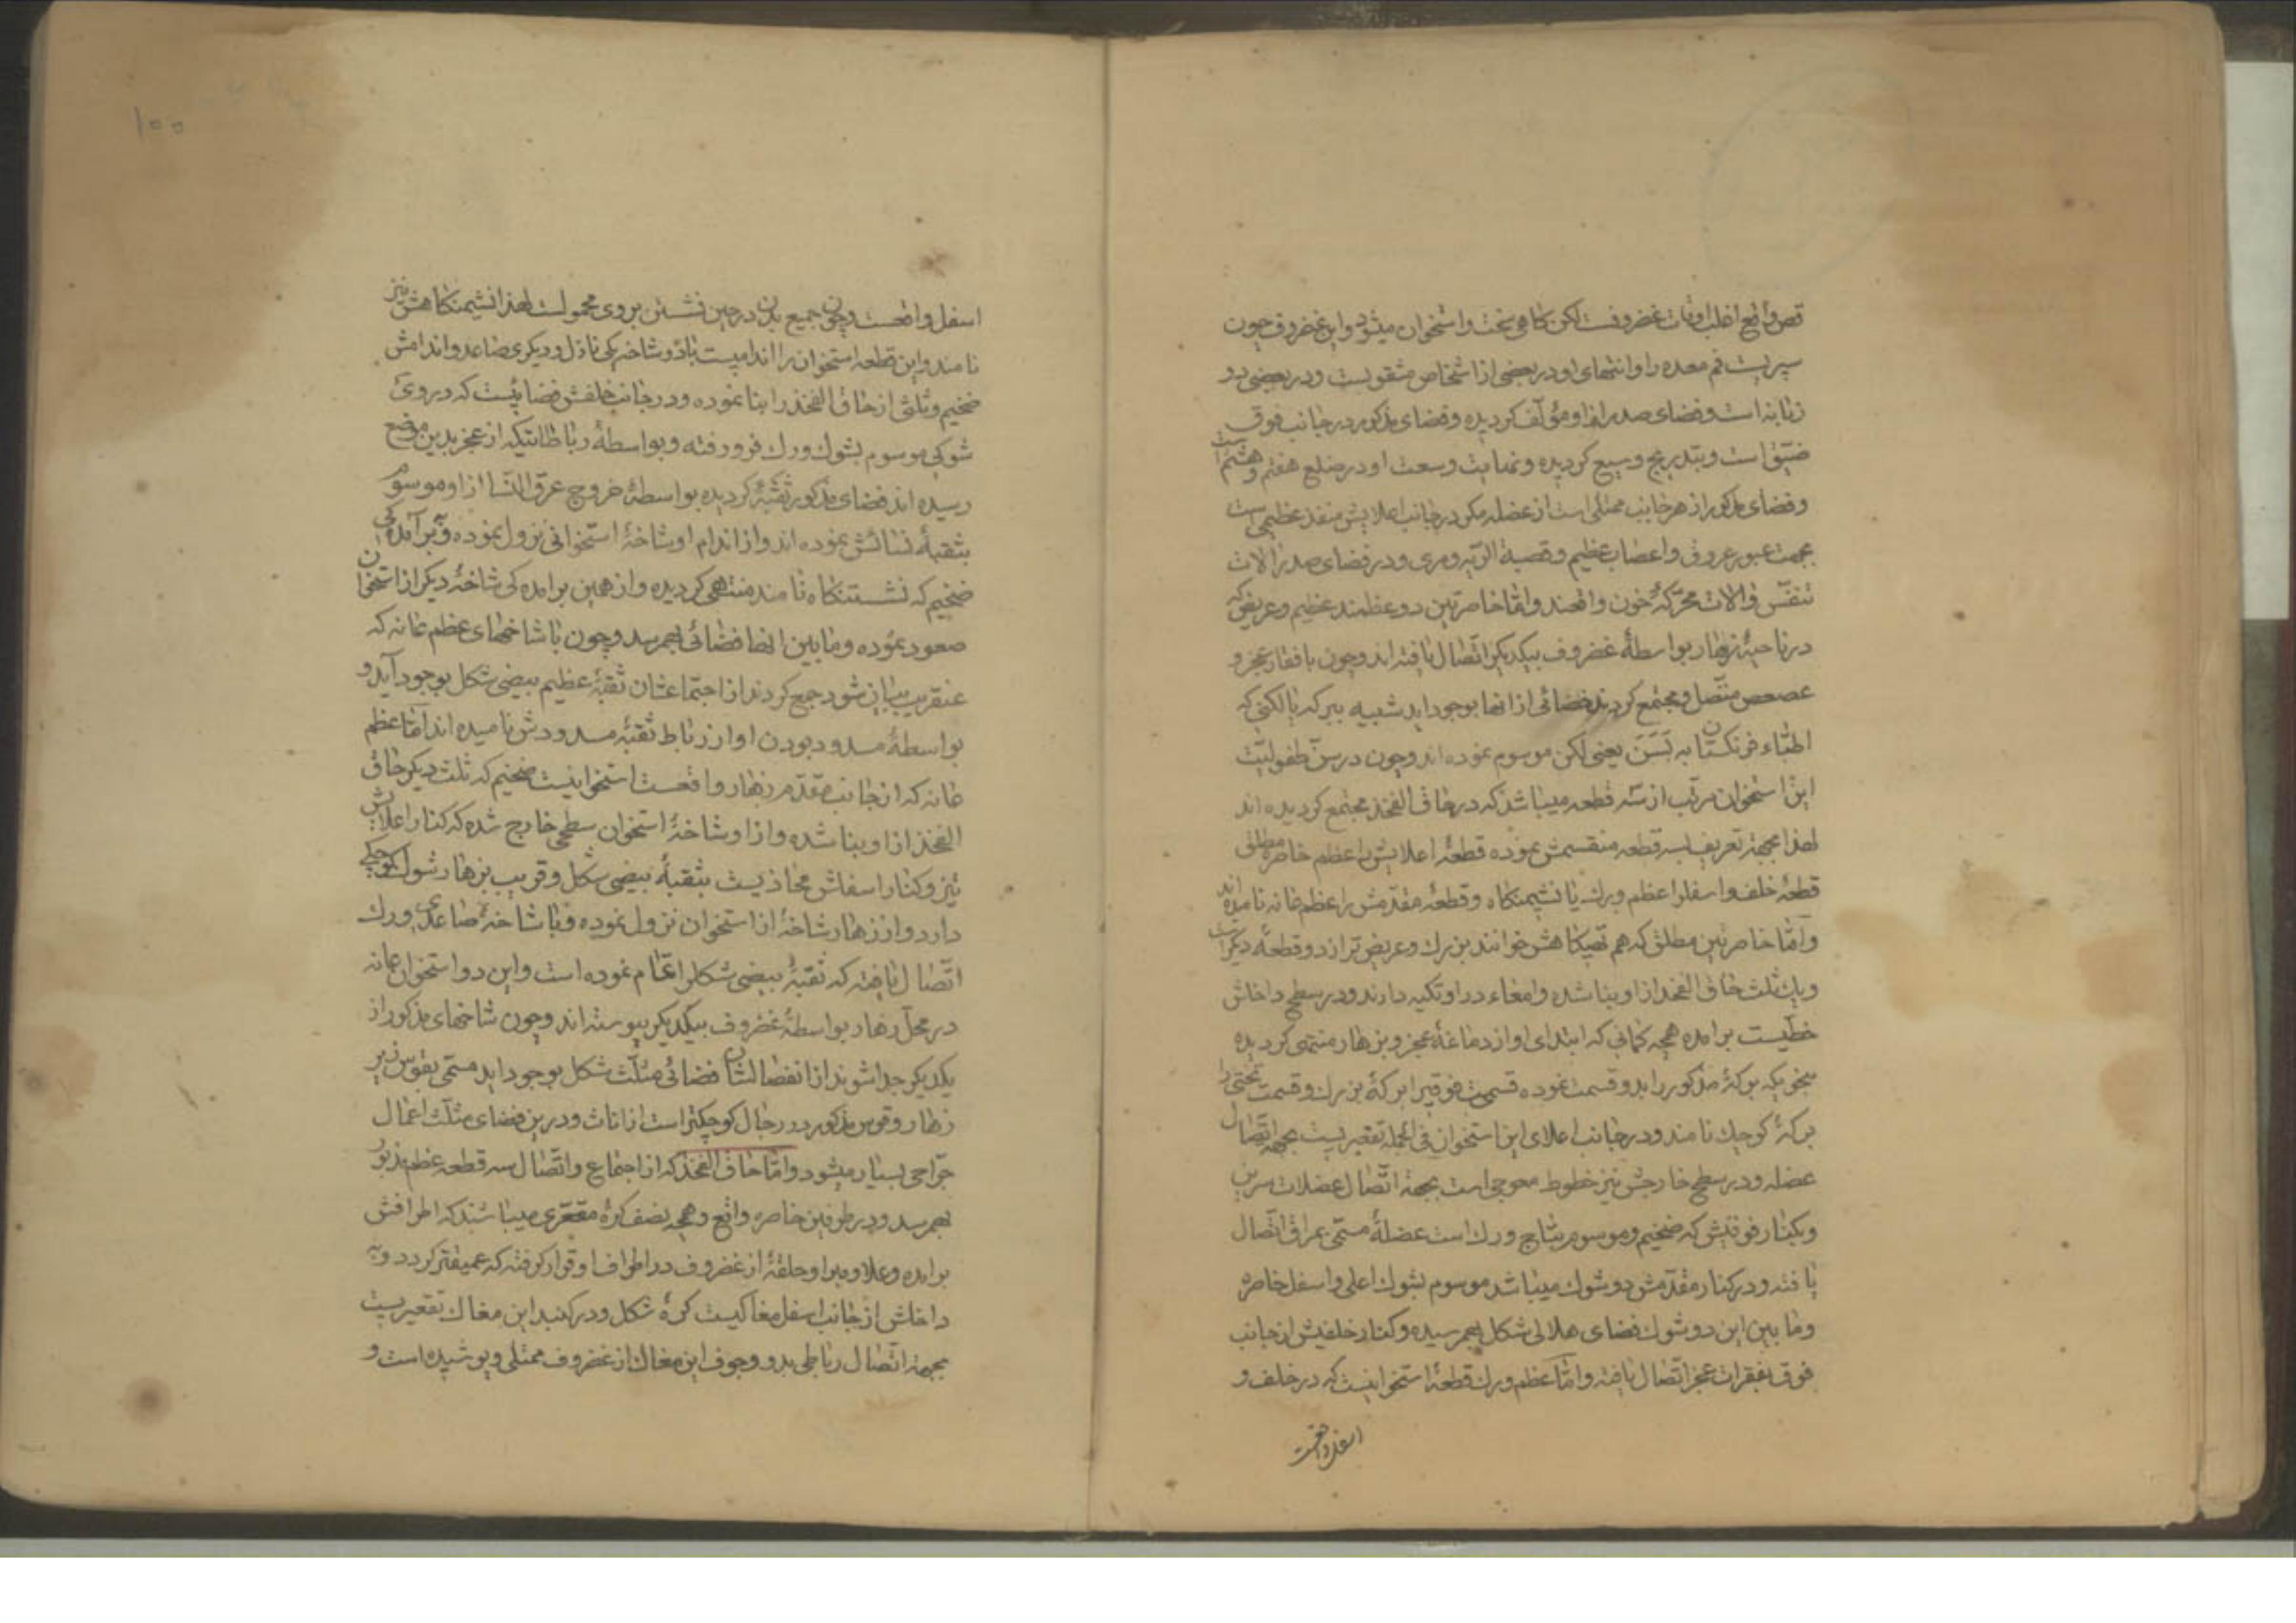 قص واقع اغلب اوقات غضروفست لکن کاهی سخت و استخوان میشود و این غضروف چون
سپریست فم معده را و انتهای او در بعضی از اشخاص مثقوبست و در بعضی دو
زبانه است و فضای صدر از او مؤلف کردیده و فضای مذکور در جانب فوق
ضیق است و بتدریج وسیع کردیده و نهایت وسعت او در ضلع هفتم و هشتم است
و فضای مذکور از هر جانب ممتلی است از عضله مکر در جانب اعلایش منفذ عظیمی است
بجهت عبور عروق و اعصاب عظیم و قصبة الریه و مری و در فضای صدر آلات
تنفس و آلات محرکهٔ خون واقعند و اما خاصرتین دو عظمند عظیم و عریض که
در ناحیهٔ زهار بواسطهٔ غضروف بیکدیکر اتصال یافته اند و چون با فقار عجز و
عصعص متصل و مجتمع کردند فضائی از انها بوجود اید شبیه ببرکه یا لکنی که
اطباء فرنکستان به لسن یعنی لکن موسوم نموده اند و چون در سن طفولیت
این استخوان مرتب از سه قطعه میباشد که در حاق الفخذ مجتمع کردیده اند
لهذا بجهة تعریف بسه قطعه منقسمش نموده قطعهٔ اعلایش را عظم خاصرهٔ مطلق
قطعهٔ خلف و اسفل را عظم ورک یا نشیمنکاه و قطعهٔ مقدمش را عظم عانه نامیده اند
و اما خاصرتین مطلق که هم تهیکاهش خوانند بزرک و عریض تر از دو قطعهٔ دیکر است
و یک ثلث حاق الفخذ از او بنا شده و امعاء در او تکیه دارند و در سطح داخلش
خطیست برامده همچه کمانی که ابتدای او از دماغهٔ عجز و بزهار منتهی کردیده
بنحویکه برکهٔ مذکور را بدو قسمت نموده قسمت فوقیرا برکهٔ بزرک و قسمت تحتی را
برکهٔ کوچک نامند و در جانب اعلای این استخوان فی الجمله تقعیریست بجهة اتصال
عضله و در سطح خارجش نیز خطوط معوجی است بجهة اتصال عضلات سرین
و بکنار فوقیش که ضخیم و موسوم بتاج ورک است عضلهٔ مسمی بمراق اتصال
یافته و در کنار مقدمش دو شوک میباشد موسوم بشوک اعلی و اسفل خاصره
و ما بین این دو شوک فضای هلالی شکل بهمرسیده و کنار خلفیش از جانب
فوق بفقرات عجز اتصال یافته و اما عظم ورک قطعهٔ استخوانیست که در خلف و
اسفل واقعست
۱۰۰
اسفل واقعست و چون جمیع بدن در حین نشستن بروی محمولست لهذا نشیمنکاهش نیز
نامند و این قطعه استخوان را اندامیست با دو شاخه یکی نازل و دیکری صاعد و اندامش
ضخیم و ثلثی از حاق الفخذ را بنا نموده و در جانب خلفش فضائیست که در روی
شوکی موسوم بشوک ورک فرو رفته و بواسطهٔ رباطاتیکه از عجز بدین موضع
رسیده اند فضای مذکور ثقبهٔ کردیده بواسطهٔ خروج عرق النسا از او موسوم
بثقبهٔ نسائش نموده اند و از اندام او شاخهٔ استخوانی نزول نموده و برآمده کی
ضخیم که نشستنکاه نامند منتهی کردیده و از همین برامده کی شاخهٔ دیکر از استخوان
صعود نموده و ما بین انها فضائی بهمرسد و چون با شاخهای عظم عانه که
عنقریب بیان شود جمع کردند از اجتماعشان ثقبهٔ عظیم بیضی شکل بوجود آید و
بواسطهٔ مسدود بودن او از رباط ثقبهٔ مسدودش نامیده اند اما عظم
عانه که از جانب مقدم زهار واقعست استخوانیست ضخیم که ثلث دیکر حاق
الفخذ از او بنا شده و از او شاخهٔ استخوان سطحی خارج شده که کنار اعلاش
تیز و کنار اسفلش محاذیست بثقبهٔ بیضی شکل و قریب بزهار شوک کوچکی
دارد و از زهار شاخهٔ از استخوان نزول نموده و با شاخهٔ صاعدی ورک
اتصال یافته که ثقبهٔ بیضی شکل را تمام نموده است و این دو استخوان عانه
در محل زهار بواسطهٔ غضروف بیکدیکر پیوسته اند و چون شاخهای مذکور از
یکدیکر جدا شوند از انفصالشان فضائی مثلث شکل بوجود اید مسمی بقوس زیر
زهار و قوس مذکور در رجال کوچکتر است از اناث و در این فضای مثلث اعمال
جراحی بسیار میشود و اما حاق الفخذ که از اجتماع و اتصال سه قطعه عظم مذبور
بهمرسد و در طرفین خاصره واقع و همچه نصف کرهٔ مقعری میباشند که اطرافش
برامده و علاوه براو حلقهٔ از غضروف در اطراف او قرار کرفته که عمیقتر کردد و به
داخلش از جانب اسفل مغاکیست کره شکل و در کنبد این مغاک تقعیریست
بجهة اتصال رباطی بدو و جوف این مغاک از غضروف ممتلی و پوشیده است و